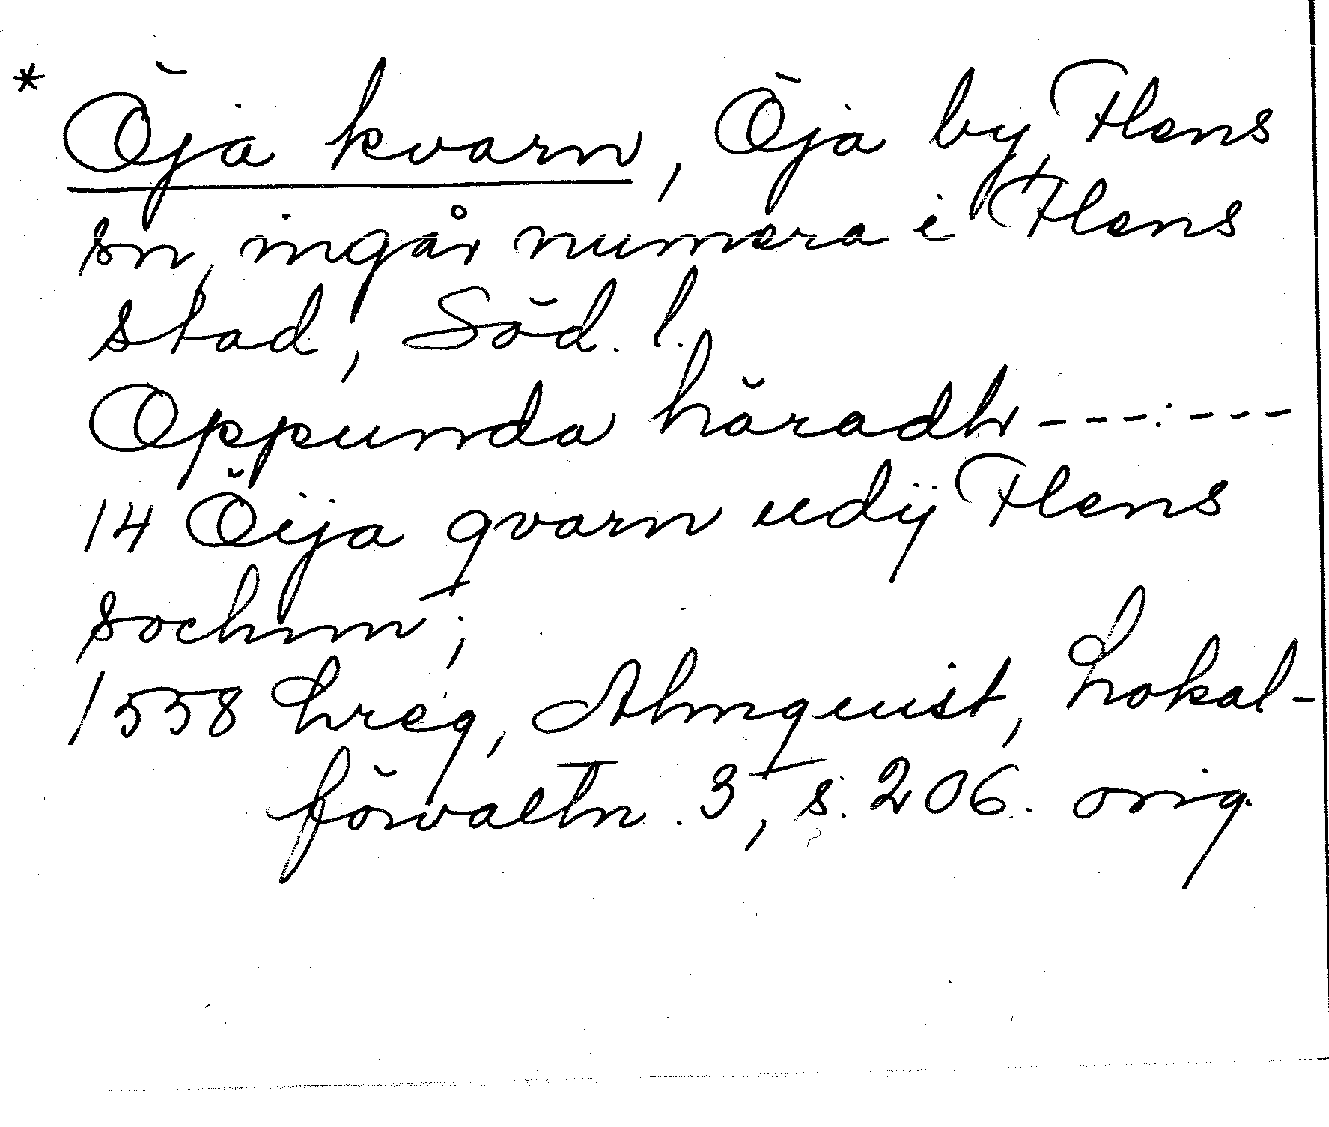 * Öja kvarn, Öja by, Flens
sn, ingår numera i Flens
stad, Söd. l.
Oppunda häradh ---:---
14 Öija qvarn udij Flens
sochnn;
1558 hreg, Almquist, Lokal-
förvaltn. 3, s. 206. orig.